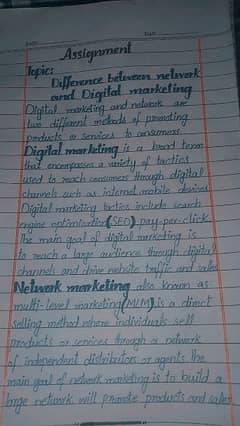 Date
Assignment
Topic:
Difference between network
and Digital marketing
Digital marketing and network are
two different methods of promoting
products or services to consumers.
Digital marketing is a broad term
that encompasses a variety of tactics
used to reach consumers through digital
channels such as internet mobile devices
Digital marketing tactics include search
engine optimization (SEO) pay-per-click.
The main goal of digital marketing is
to reach a large audience through digital
channels and drive website traffic and sales
Network marketing also known as
multi-level marketing (MLM) is a direct
selling method where individuals sell
products or services through a network
of independent distributors or agents the
main goal of network marketing is to build a
large network will promote products and sales